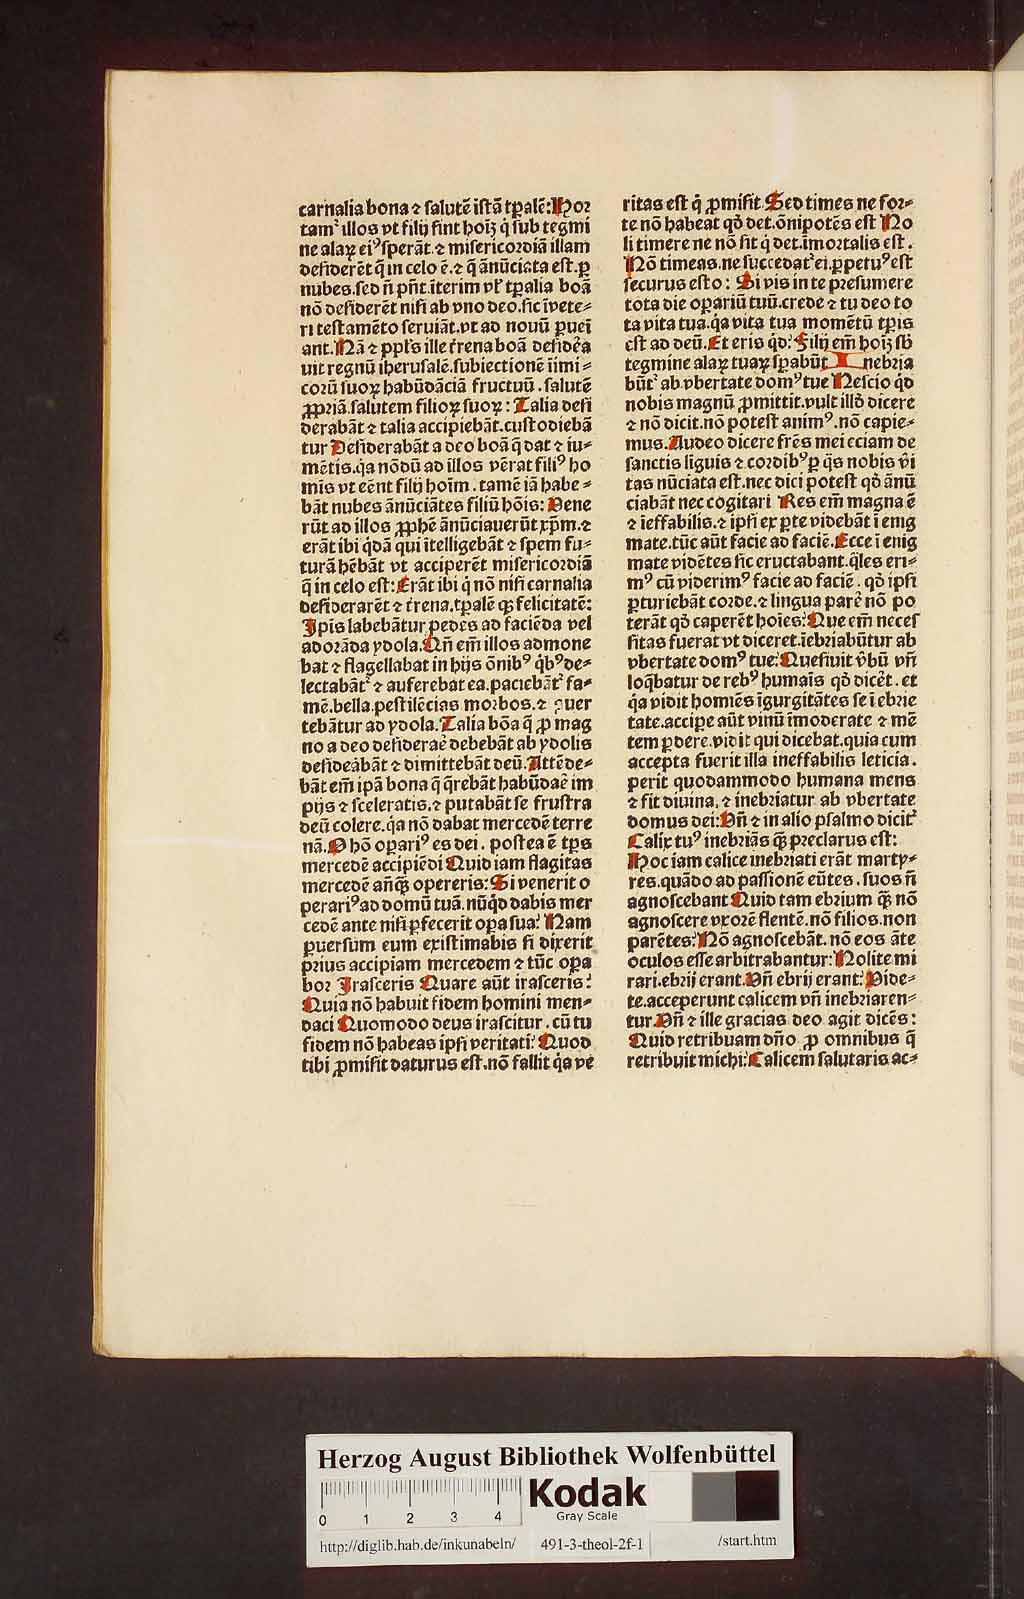 carnalia bona ⁊ salutē istā tp̄alē: Hor
tamᷣ illos vt filij sint hoīꝫ q̇ sub tegmi
ne alaꝝ eiꝰ sperāt. ⁊ misericordiā illam
desiderēt q̄ in celo ē. ⁊ q̄ ānūciata est. ꝑ
nubes. sed n̄ pn̄t. īterim vl̓ tp̄alia boā
nō desiderēt nisi ab vno deo. sic īvete⸗
ri testamēto seruiāt. vt ad nouū ꝑueī
ant. Nā ⁊ ppl̓s ille t̄rena boā desiđa
uit regnū iherusalē. subiectionē inīmi⸗
corū suoꝝ habūdāciā fructuū. salutē
ꝓpriā. salutem filioꝝ suoꝝ: Talia desi
derabāt ⁊ talia accipiebāt. custodiebā
tur Desiderabāt a deo boā q̄ dat ⁊ iu⸗
mētis. q̇a nōdū ad illos vērat filiꝰ ho
mis vt eēnt filij hoīm. tamē iā habe⸗
bāt nubes ānūciātes filiū hōis: Vene
rūt ad illos ꝓphē ānūciauerūt xp̄m. ⁊
erāt ibi q̇dā qui ītelligebāt ⁊ spem fu⸗
turā hēbāt vt acciperēt misericordiā
q̄ in celo est: Erāt ibi q̇ nō nisi carnalia
desiderarēt ⁊ t̄rena. tp̄alē qꝫ felicitatē:
Ip̄is labebātur pedes ad faciēda vel
adorāda ydola. Qn̄ em̄ illos admone
bat ⁊ flagellabat in hijs ōnibꝰ q̇bꝰ de⸗
lectabātᷣ ⁊ auferebat ea. paciebātᷣ fa⸗
mē. bella. pestilēcias morbos. ⁊ ꝯuer
tebātur ad ydola. Talia bōa q̄ ꝓ mag
no a deo desiderae̅ debebāt ab ydolis
desideābāt ⁊ dimittebāt deū. Attēde⸗
bāt em̄ ip̄a bona q̄ q̄rebāt habūdae̅ im
pijs ⁊ sceleratis. ⁊ putabāt se frustra
deū colere. q̇a nō dabat mercedē terre
nā. O hō opariꝰ es dei. postea ē tp̄s
mercedē accipiēdi Quid iam flagitas
mercedē an̄qꝫ̄ opereris: Si venerit o
perariꝰ ad domū tuā. nūq̇d dabis mer
cedē ante nisi ꝑfecerit oꝑa sua? Nam
ꝑuersum eum existimabis si dixerit
prius accipiam mercedem ⁊ tūc oꝑa
bor Irasceris Quare aūt irasceris?
Quia nō habuit fidem homini men⸗
daci Quomodo deus irascitur. cū tu
fidem nō habeas ipsi veritati: Quod
tibi ꝓmisit daturus est. nō fallit q̇a ve
ritas est q̇ ꝓmisit. Sed times ne for⸗
te nō habeat qđ det. ōnipotēs est No
li timere ne nō sit q̇ det. īmortalis est.
Nō timeas. ne succedatᷣ ei. ꝑpetuꝰ est
securus esto: Si vis in te presumere
tota die opariū tuū. crede ⁊ tu deo to
ta vita tua. q̇a vita tua momētū tp̄is
est ad deū. Et eris qđ: Filij em̄ hoīꝫ sb̄
tegmine alaꝝ tuaꝝ sp̄abūt. Inebria
būtᷣ ab vbertate domꝰ tue Nescio qđ
nobis magnū ꝓmittit. vult illđ dicere
⁊ nō dicit. nō potest animꝰ. nō capie⸗
mus. Audeo dicere frēs mei eciam de
sanctis liguis ⁊ cordibꝰ ꝑ q̄s nobis v̄i
tas nūciata est. nec dici potest qđ ānū
ciabāt nec cogitari Res em̄ magna ē
⁊ ieffabilis. ⁊ ipsi ex ꝑte videbāt ī enig
mate. tūc aūt facie ad faciē. Ecce ī enig
mate vidētes sic eructabant. q̄les eri⸗
mꝰ cū viderimꝰ facie ad faciē. qđ ipsi
ꝑturiebāt corde. ⁊ lingua pare̅ nō po
terāt qđ caperēt hoies: Que em̄ neces
sitas fuerat vt diceret. īebriabūtur ab
vbertate domꝰ tue: Quesiuit v̄bū vn̄
loq̄batur de rebꝰ humaīs qđ dicēt. et
q̇a vidit homiēs īgurgitātes se ī ebrie
tate. accipe aūt vinū īmoderate ⁊ mē
tem ꝑdere. vidit qui dicebat. quia cum
accepta fuerit illa ineffabilis leticia.
perit quodammodo humana mens
⁊ fit diuina, ⁊ inebriatur ab vbertate
domus dei: Vn̄ ⁊ in alio psalmo dicitᷣ
Calix tuꝰ inebriās qꝫ̄ preclarus est:
Hoc iam calice inebriati erāt marty⸗
res. quādo ad passionē eūtes. suos n̄
agnoscebant Quid tam ebrium qꝫ̄ nō
agnoscere vxorē flentē. nō filios. non
parētes: Nō agnoscebāt. nō eos āte
oculos esse arbitrabantur: Nolite mi
rari. ebrij erant. Vn̄ ebrij erant: Vide⸗
te. acceperunt calicem vn̄ inebriaren⸗
tur. Vn̄ ⁊ ille gracias deo agit dicēs:
Quid retribuam dn̄o ꝓ omnibus q̄
retribuit michi: Calicem salutaris ac⸗
Herzog August Bibliothek Wolfenbüttel
0 1 2 3 4
Kodak
Gray Scale
http://diglib.hab.de/inkunabeln/ 491-3-theol-2f-1 /start.htm